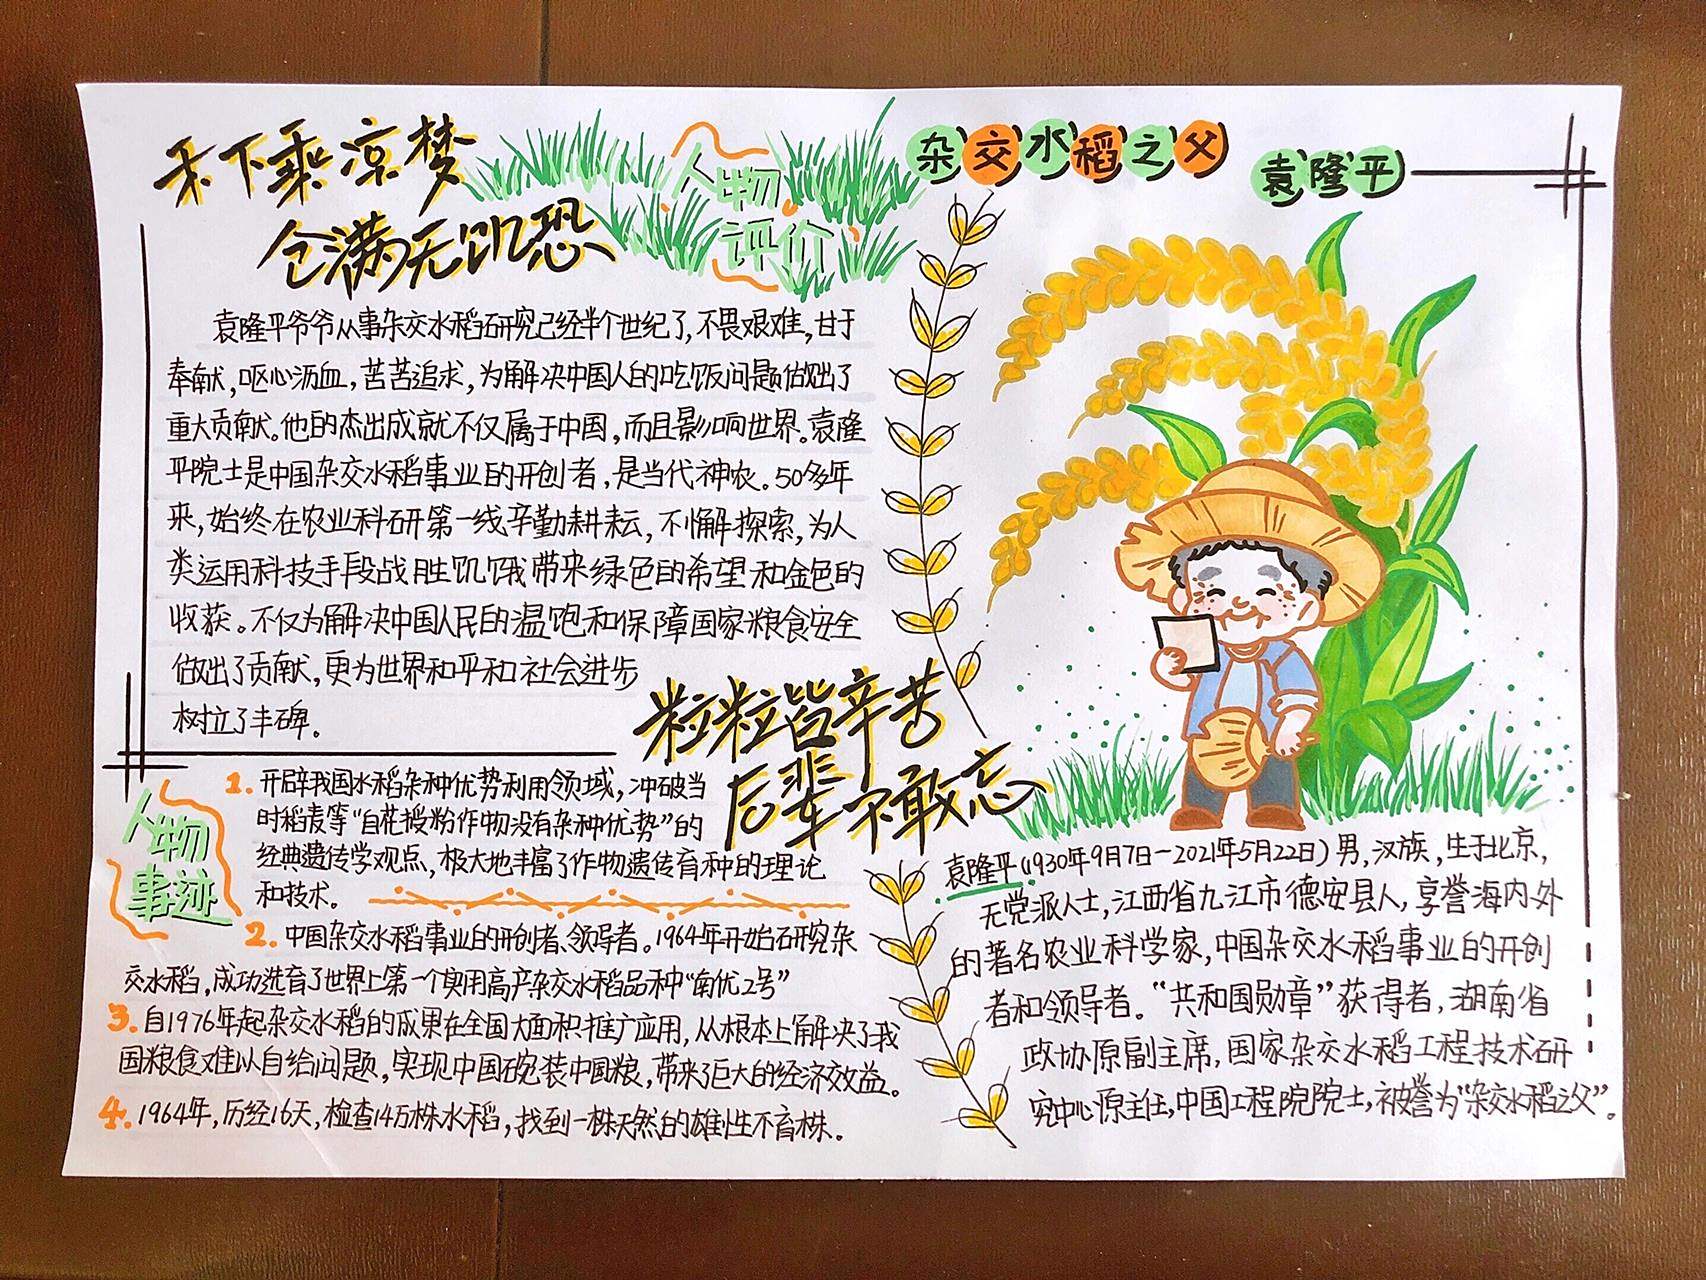 禾下乘凉梦
仓满无饥恐
人物
评价
袁隆平爷爷从事杂交水稻研究已经半个世纪了，不畏艰难，甘于
奉献，呕心沥血，苦苦追求，为解决中国人的吃饭问题做出了
重大贡献。他的杰出成就不仅属于中国，而且影响世界。袁隆
平院士是中国杂交水稻事业的开创者，是当代神农。50多年
来，始终在农业科研第一线辛勤耕耘，不懈探索，为人
类运用科技手段战胜饥饿带来绿色的希望和金色的
收获。不仅为解决中国人民的温饱和保障国家粮食安全
做出了贡献，更为世界和平和社会进步
树立了丰碑。
粒粒皆辛苦
后辈不敢忘
人物
事迹
1. 开辟我国水稻杂种优势利用领域，冲破当
时稻麦等“自花授粉作物没有杂种优势”的
经典遗传学观点，极大地丰富了作物遗传育种的理论
和技术。
2. 中国杂交水稻事业的开创者、领导者。1964年开始研究杂
交水稻，成功选育了世界上第一个实用高产杂交水稻品种“南优2号”
3. 自1976年起杂交水稻的成果在全国大面积推广应用，从根本上解决了我
国粮食难以自给问题，实现中国碗装中国粮，带来了巨大的经济效益。
4. 1964年，历经16天，检查14万株水稻，找到一株天然的雄性不育株。
杂交水稻之父
袁隆平
袁隆平（1930年9月7日—2021年5月22日）男，汉族，生于北京，
无党派人士，江西省九江市德安县人，享誉海内外
的著名农业科学家，中国杂交水稻事业的开创
者和领导者。“共和国勋章”获得者，湖南省
政协原副主席，国家杂交水稻工程技术研
究中心原主任，中国工程院院士，被誉为“杂交水稻之父”。